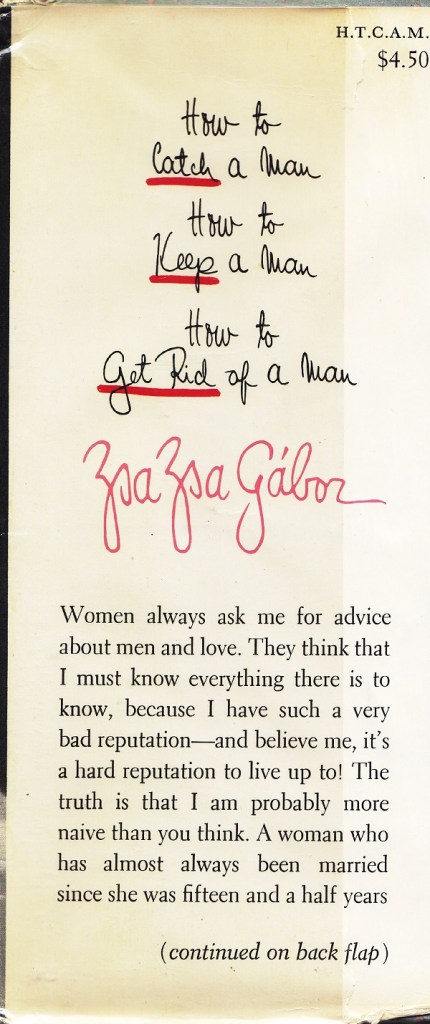 H.T.C.A.M.
$4.50
How to
Catch a Man
How to
Keep a Man
How to
Get Rid of a Man
Zsa Zsa Gábor
Women always ask me for advice
about men and love. They think that
I must know everything there is to
know, because I have such a very
bad reputation—and believe me, it's
a hard reputation to live up to! The
truth is that I am probably more
naive than you think. A woman who
has almost always been married
since she was fifteen and a half years
(continued on back flap)